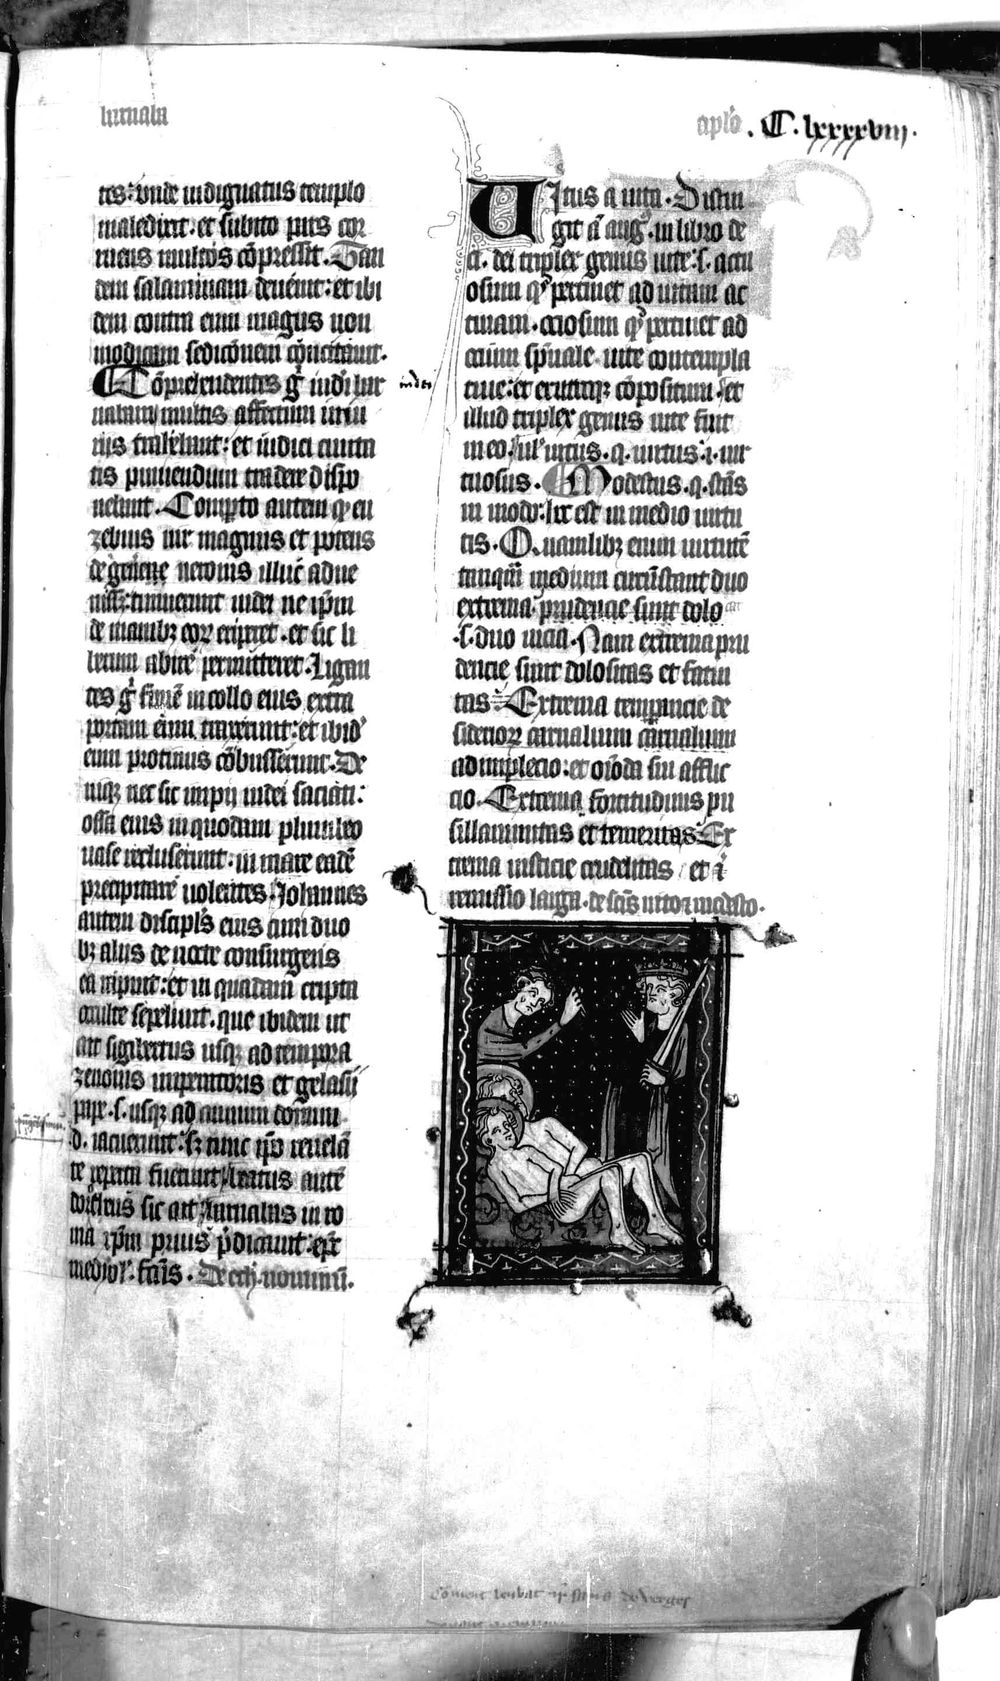 barnaba
aplō . C . lxxxxviii .
tes: unde indignatus templo
maledixit. et subito pars cor
ruens multos cōpressit. Tan
dem salaminam deuēnit: et ibi
dem contra eum magus non
modicam sedicōnem
Cōprehendentes g° iudei bar
nabam multis affectum iniu
riis trahebant: et iudici ciuita
tis puniendum tradere dispo
nebant. Comperto autem qȝ eu
zebius uir magnus et potens
de gen̄e neronis illuc adue
nisset: timuerunt iudei ne ip̄m
de manibȝ eoꝝ eriperet. et sic li
berum abire permitteret. Ligan
tes g° funē in collo eius extra
portam eum traxerunt: et ibidē
eum protinus cōbusserunt. De
niqȝ nec sic impij iudei saciati:
ossa eius in quodam plumbeo
uase recluserunt: in mare eadē
precipitare uolentes. Johannes
autem discipl's eius cum duo
bȝ aliis de nocte consurgens
ea rapuit: et in quadam cripta
occulte sepeliuit. que ibidem ut
ait sigibertus usqȝ ad tempora
zenonis imperatoris et gelasii
pape. s. usqȝ ad annum domini
.d. latuerunt: sȝ tunc ip̄o reuelā
te reperta fuerunt. Beatus autē
dorotheus sic ait. Barnabas in ro
ma xp̄m prius p̄dicauit: ep̄c
mediol'. fcūs. De
iudei
Uitus a uita. Distin
git ā aug°. in libro de
ci. dei triplex genus uite: s. actu
osum qȝ pertinet ad uitam ac
tiuam. ociosum qȝ pertinet ad
ocium sp̄uale uite contempla
tiue: et ex utrisqȝ cōpositum. et
illud triplex genus uite fuit
in eo. uel uitus. q. uirtus. i. uir
tuosus. Modestus. q. stās
in modo: hic est in medio uirtu
tis. Quamlibȝ enim uirtutē
tanquā medium circūstant duo
extrema. prudencie sunt dolo
.s. duo uicia. Nam extrema pru
dencie sunt dolositas et fatui
tas. Extrema temperancie de
sideriorꝝ carnalium carnalium
adimplecio: et om̄oda sui afflic
cio. Extrema fortitudinis pu
sillanimitas et temeritas Ex
trema iusticie crudelitas et
remissio larga. de scīs uito et modesto.